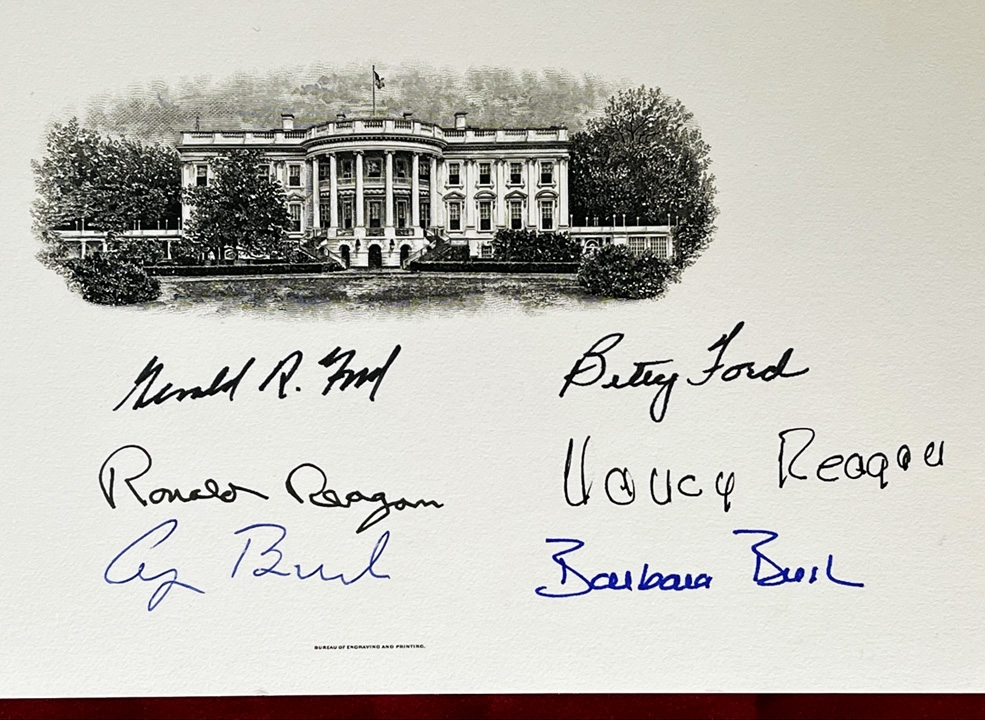 Gerald R. Ford Betty Ford
Ronald Reagan Nancy Reagan
Gg Bush Barbara Bush
BUREAU OF ENGRAVING AND PRINTING.